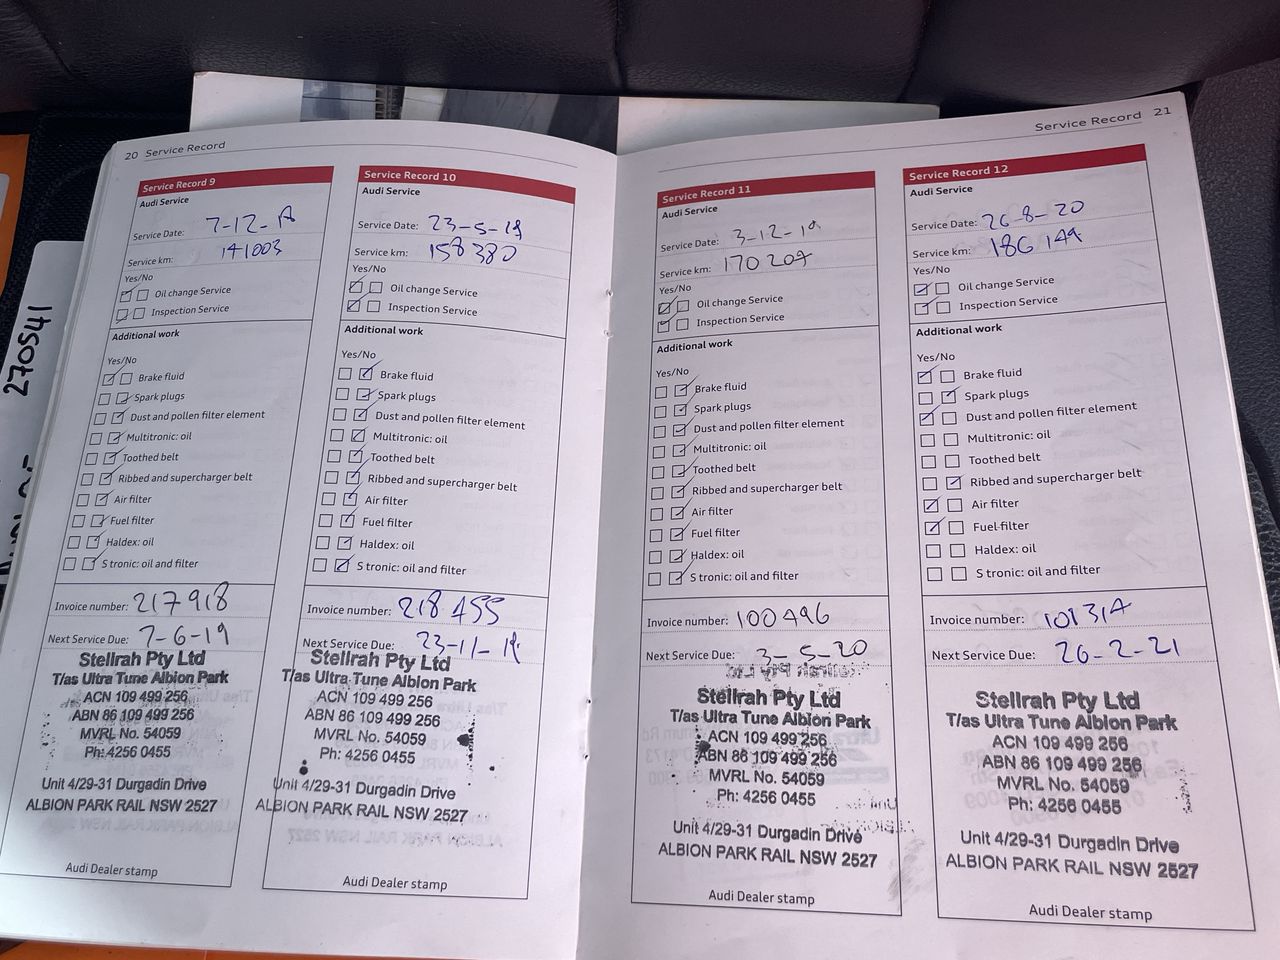 20 Service Record
Service Record 9
Audi Service
Service Date: 7-12-18
Service km: 141003
Yes/No
Oil change Service
Inspection Service
Additional work
Yes/No
Brake fluid
Spark plugs
Dust and pollen filter element
Multitronic: oil
Toothed belt
Ribbed and supercharger belt
Air filter
Fuel filter
Haldex: oil
S tronic: oil and filter
Invoice number: 217918
Next Service Due: 7-6-19
Stellrah Pty Ltd
T/as Ultra Tune Albion Park
ACN 109 499 256
ABN 86 109 499 256
MVRL No. 54059
Ph: 4256 0455
Unit 4/29-31 Durgadin Drive
ALBION PARK RAIL NSW 2527
Audi Dealer stamp
Service Record 10
Audi Service
Service Date: 23-5-19
Service km: 158380
Yes/No
Oil change Service
Inspection Service
Additional work
Yes/No
Brake fluid
Spark plugs
Dust and pollen filter element
Multitronic: oil
Toothed belt
Ribbed and supercharger belt
Air filter
Fuel filter
Haldex: oil
S tronic: oil and filter
Invoice number: 218455
Next Service Due: 23-11-19
Stellrah Pty Ltd
T/as Ultra Tune Albion Park
ACN 109 499 256
ABN 86 109 499 256
MVRL No. 54059
Ph: 4256 0455
Unit 4/29-31 Durgadin Drive
ALBION PARK RAIL NSW 2527
Audi Dealer stamp
Service Record 21
Service Record 11
Audi Service
Service Date: 3-12-19
Service km: 170207
Yes/No
Oil change Service
Inspection Service
Additional work
Yes/No
Brake fluid
Spark plugs
Dust and pollen filter element
Multitronic: oil
Toothed belt
Ribbed and supercharger belt
Air filter
Fuel filter
Haldex: oil
S tronic: oil and filter
Invoice number: 100496
Next Service Due: 3-5-20
Stellrah Pty Ltd
T/as Ultra Tune Albion Park
ACN 109 499 256
ABN 86 109 499 256
MVRL No. 54059
Ph: 4256 0455
Unit 4/29-31 Durgadin Drive
ALBION PARK RAIL NSW 2527
Audi Dealer stamp
Service Record 12
Audi Service
Service Date: 26-8-20
Service km: 186149
Yes/No
Oil change Service
Inspection Service
Additional work
Yes/No
Brake fluid
Spark plugs
Dust and pollen filter element
Multitronic: oil
Toothed belt
Ribbed and supercharger belt
Air filter
Fuel filter
Haldex: oil
S tronic: oil and filter
Invoice number:
Next Service Due: 26-2-21
Stellrah Pty Ltd
T/as Ultra Tune Albion Park
ACN 109 499 256
ABN 86 109 499 256
MVRL No. 54059
Ph: 4256 0455
Unit 4/29-31 Durgadin Drive
ALBION PARK RAIL NSW 2527
Audi Dealer stamp
270541